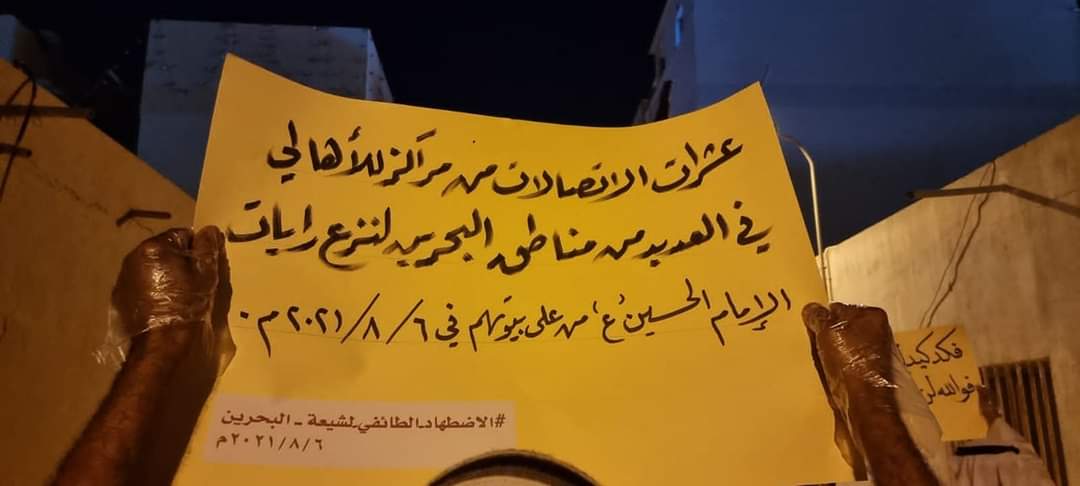 عشرات الاتصالات من مراكز للأهالي
في العديد من مناطق البحرين لنزع رايات
الإمام الحسين "ع" من على بيوتهم في ٢٠٢١/٨/٦م.
#الاضطهاد_الطائفي_لشيعة_البحرين
٢٠٢١/٨/٦م
فكد كيدك
فوالله